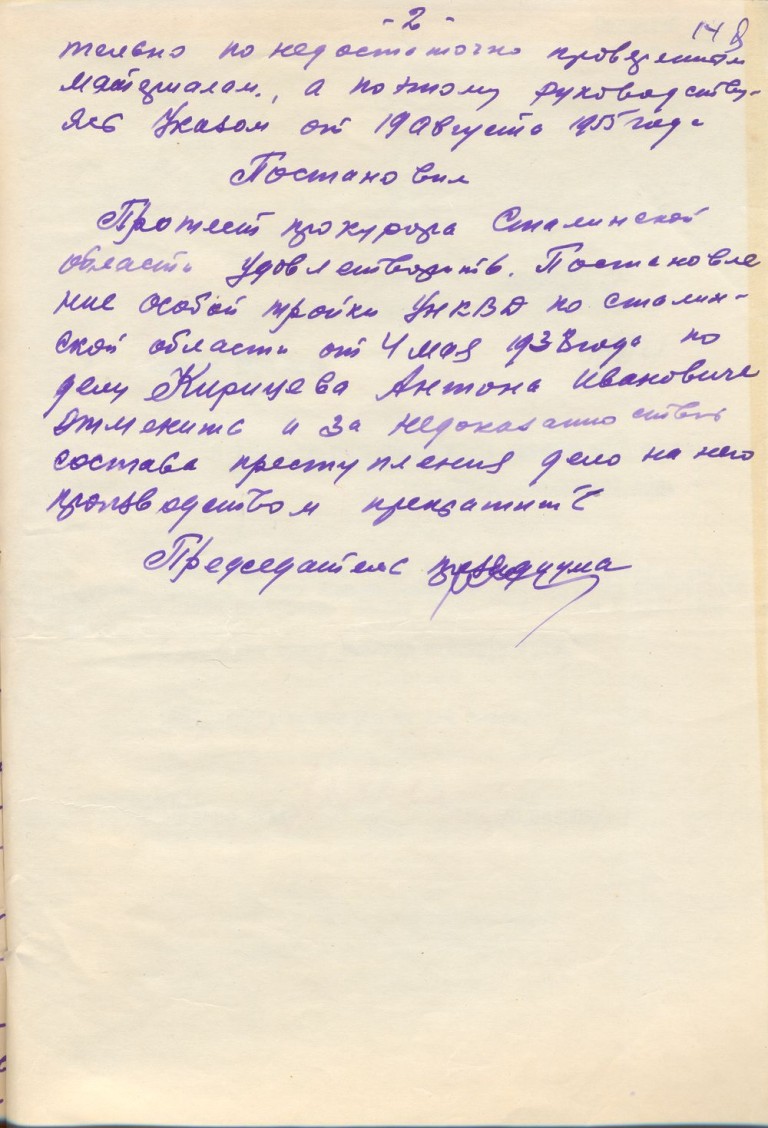 - 2 -
148
тельно по недостаточно проверенным
материалам, а поэтому руководству-
ясь Указом от 19 августа 1955 года
Постановил
Протест прокурора Сталинской
области удовлетворить. Постановле
ние особой тройки УНКВД по сталин-
ской области от 4 мая 1938 года по
делу Кирицева Антона Ивановича
отменить и за недоказанностью
состава преступления дело на него
производством прекратить
Председатель президиума